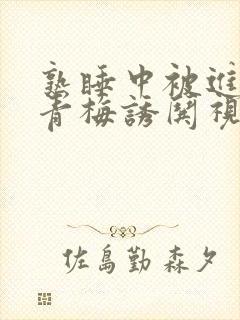 熟睡中被進
青梅誘関視
佐島勤 森夕